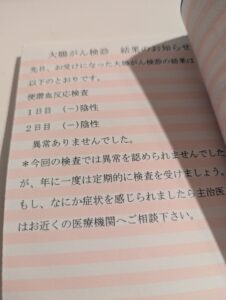 大腸がん検診 結果のお知らせ
先日、お受けになった大腸がん検診の結果は
以下のとおりです。
便潜血反応検査
1日目 (−)陰性
2日目 (−)陰性
異常ありませんでした。
*今回の検査では異常を認められませんでした
が、年に一度は定期的に検査を受けましょう。
もし、なにか症状を感じられましたら主治医
はお近くの医療機関へご相談下さい。